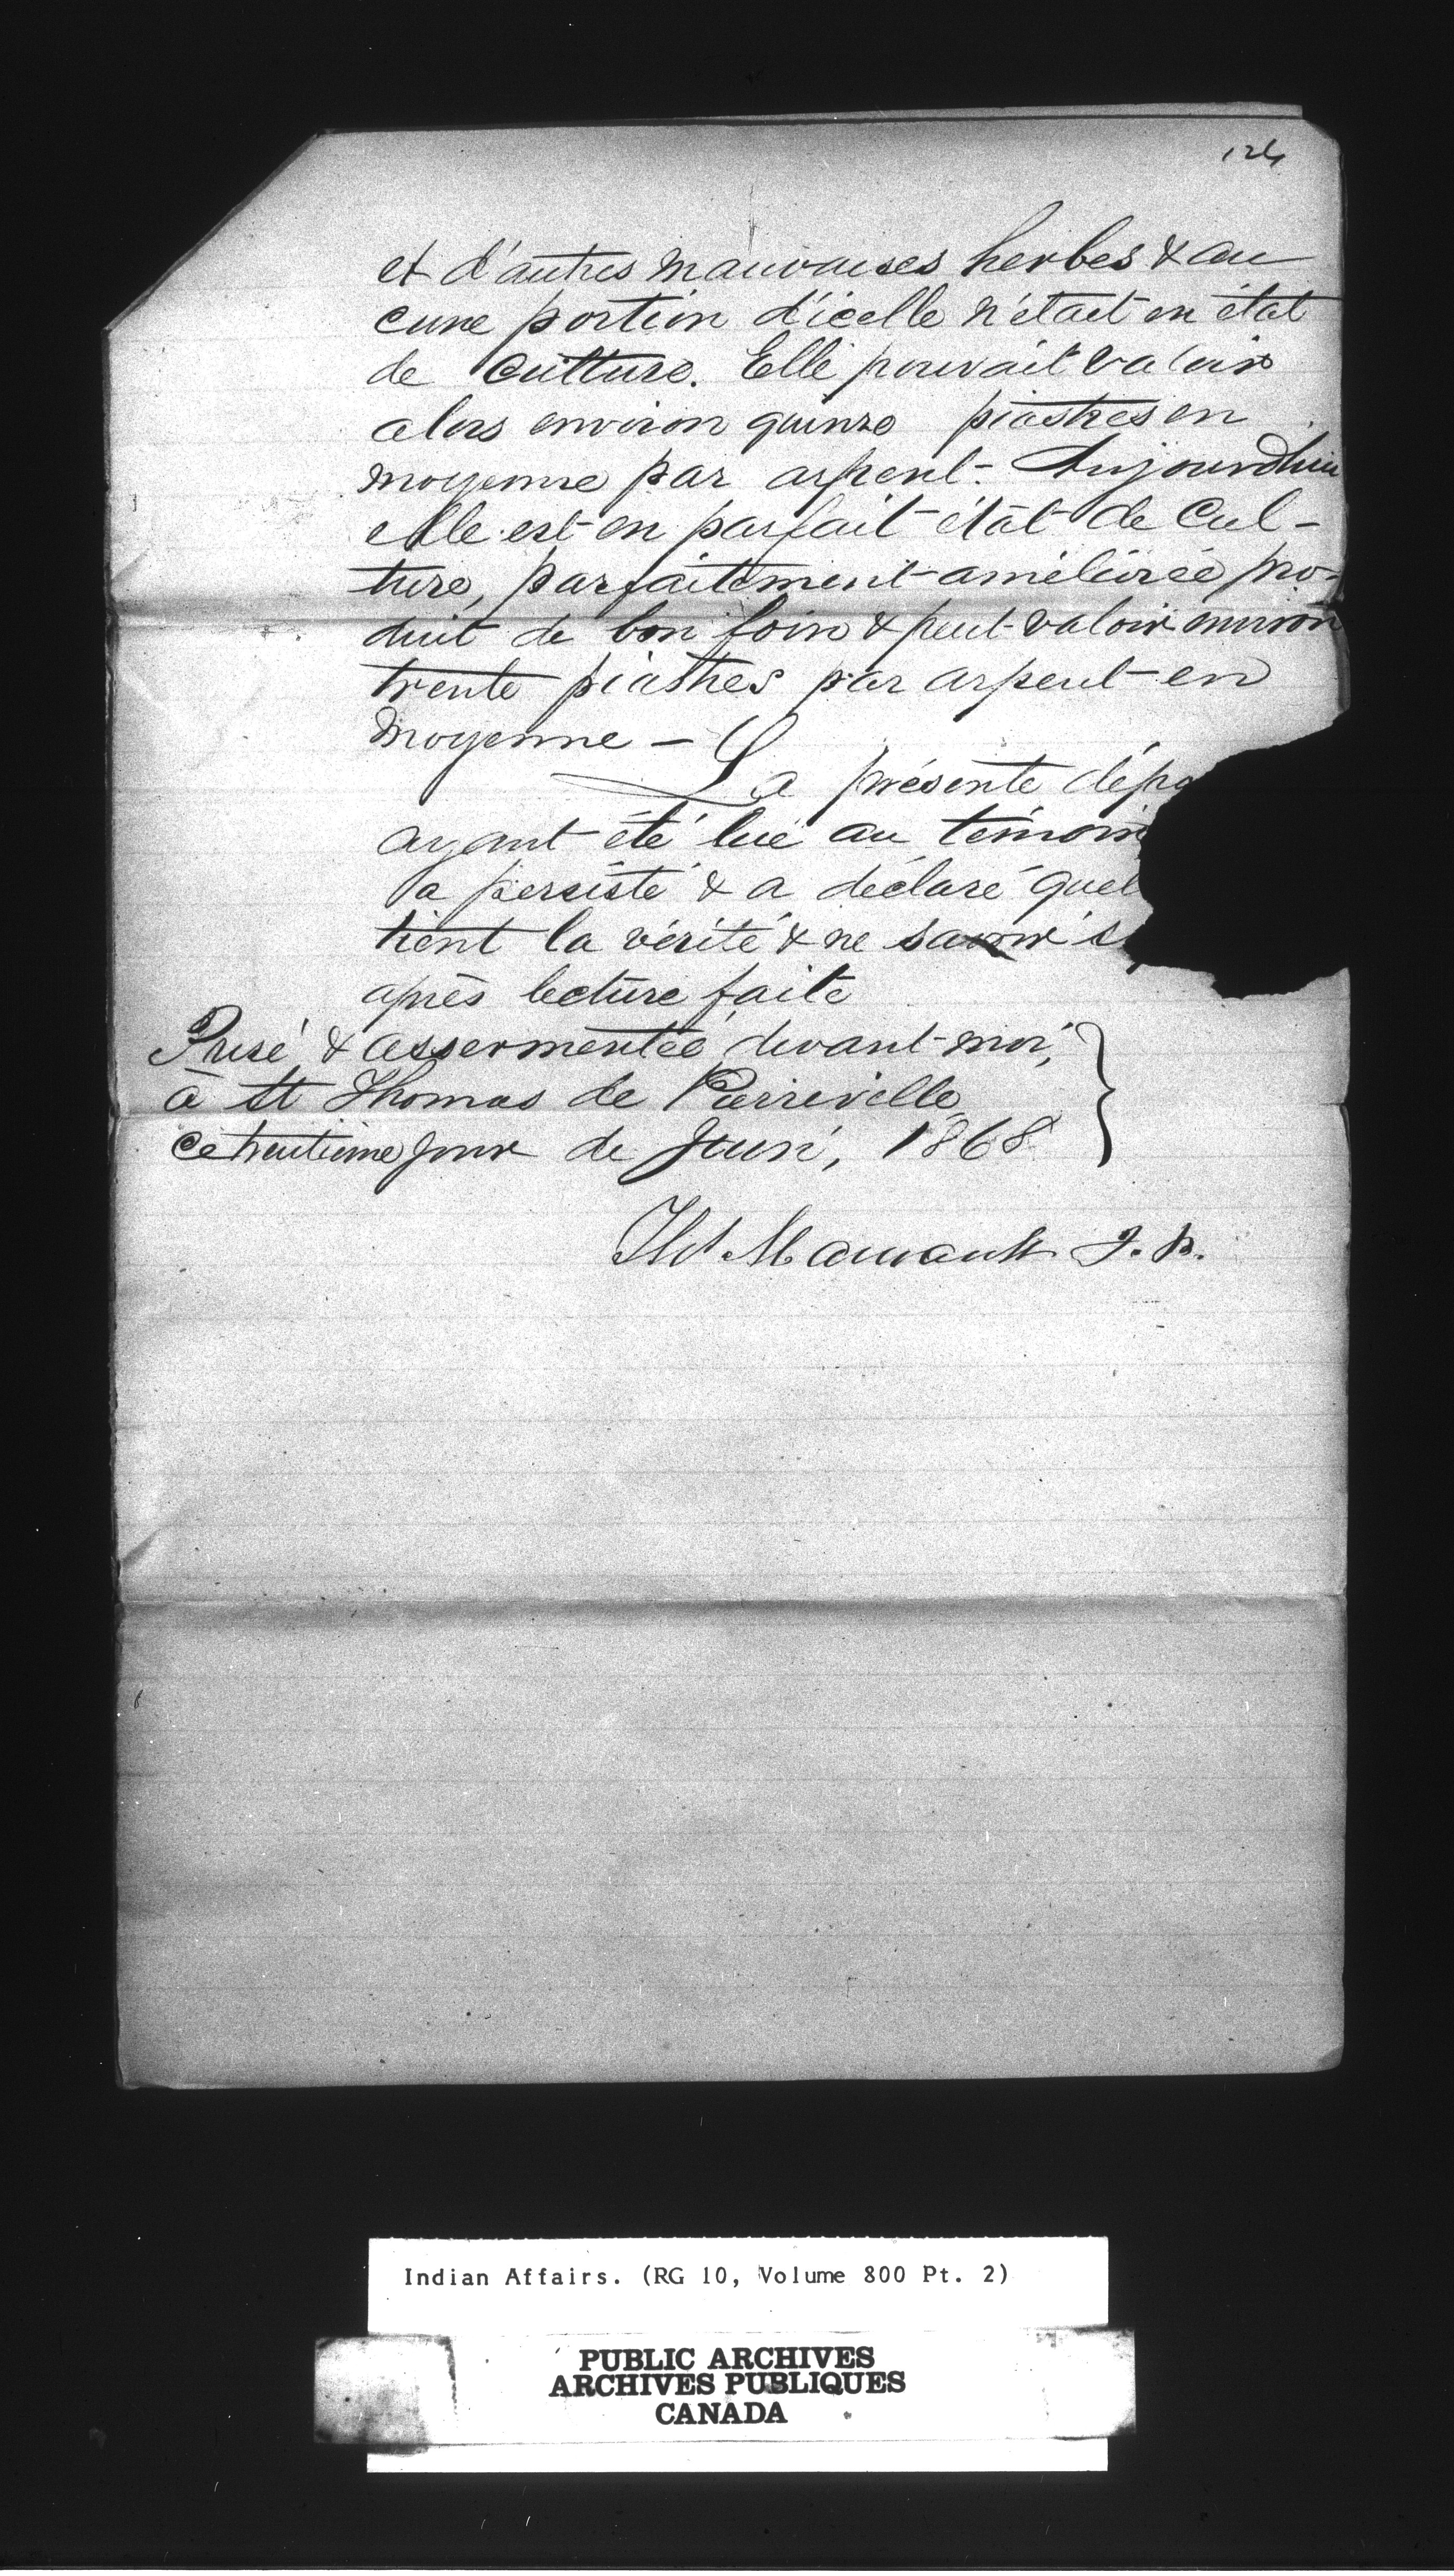 124
et d'autres mauvaises herbes & au
cune portion d'icelle n'était en état
de culture. Elle pouvait valoir
alors environ quinze piastres en
moyenne par arpent - Aujourdhui
elle est en parfait état de cul-
ture, parfaitement améliorée pro-
duit de bon foin & peut valoir environ
trente piastres par arpent en
moyenne -
La présente dépo
ayant été lue au témoin
a persisté & a déclaré quel
tient la vérité & ne savoir s
après lecture faite
Prise & assermentée devant moi,
à St Thomas de Pierreville
ce huitième jour de Juin, 1868
Maurault J. P.
Indian Affairs. (RG 10, Volume 800 Pt. 2)
PUBLIC ARCHIVES
ARCHIVES PUBLIQUES
CANADA